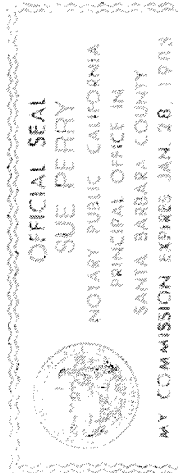 OFFICIAL SEAL
SUE PERRY
NOTARY PUBLIC CALIFORNIA
PRINCIPAL OFFICE IN
SANTA BARBARA COUNTY
MY COMMISSION EXPIRES JAN. 28,